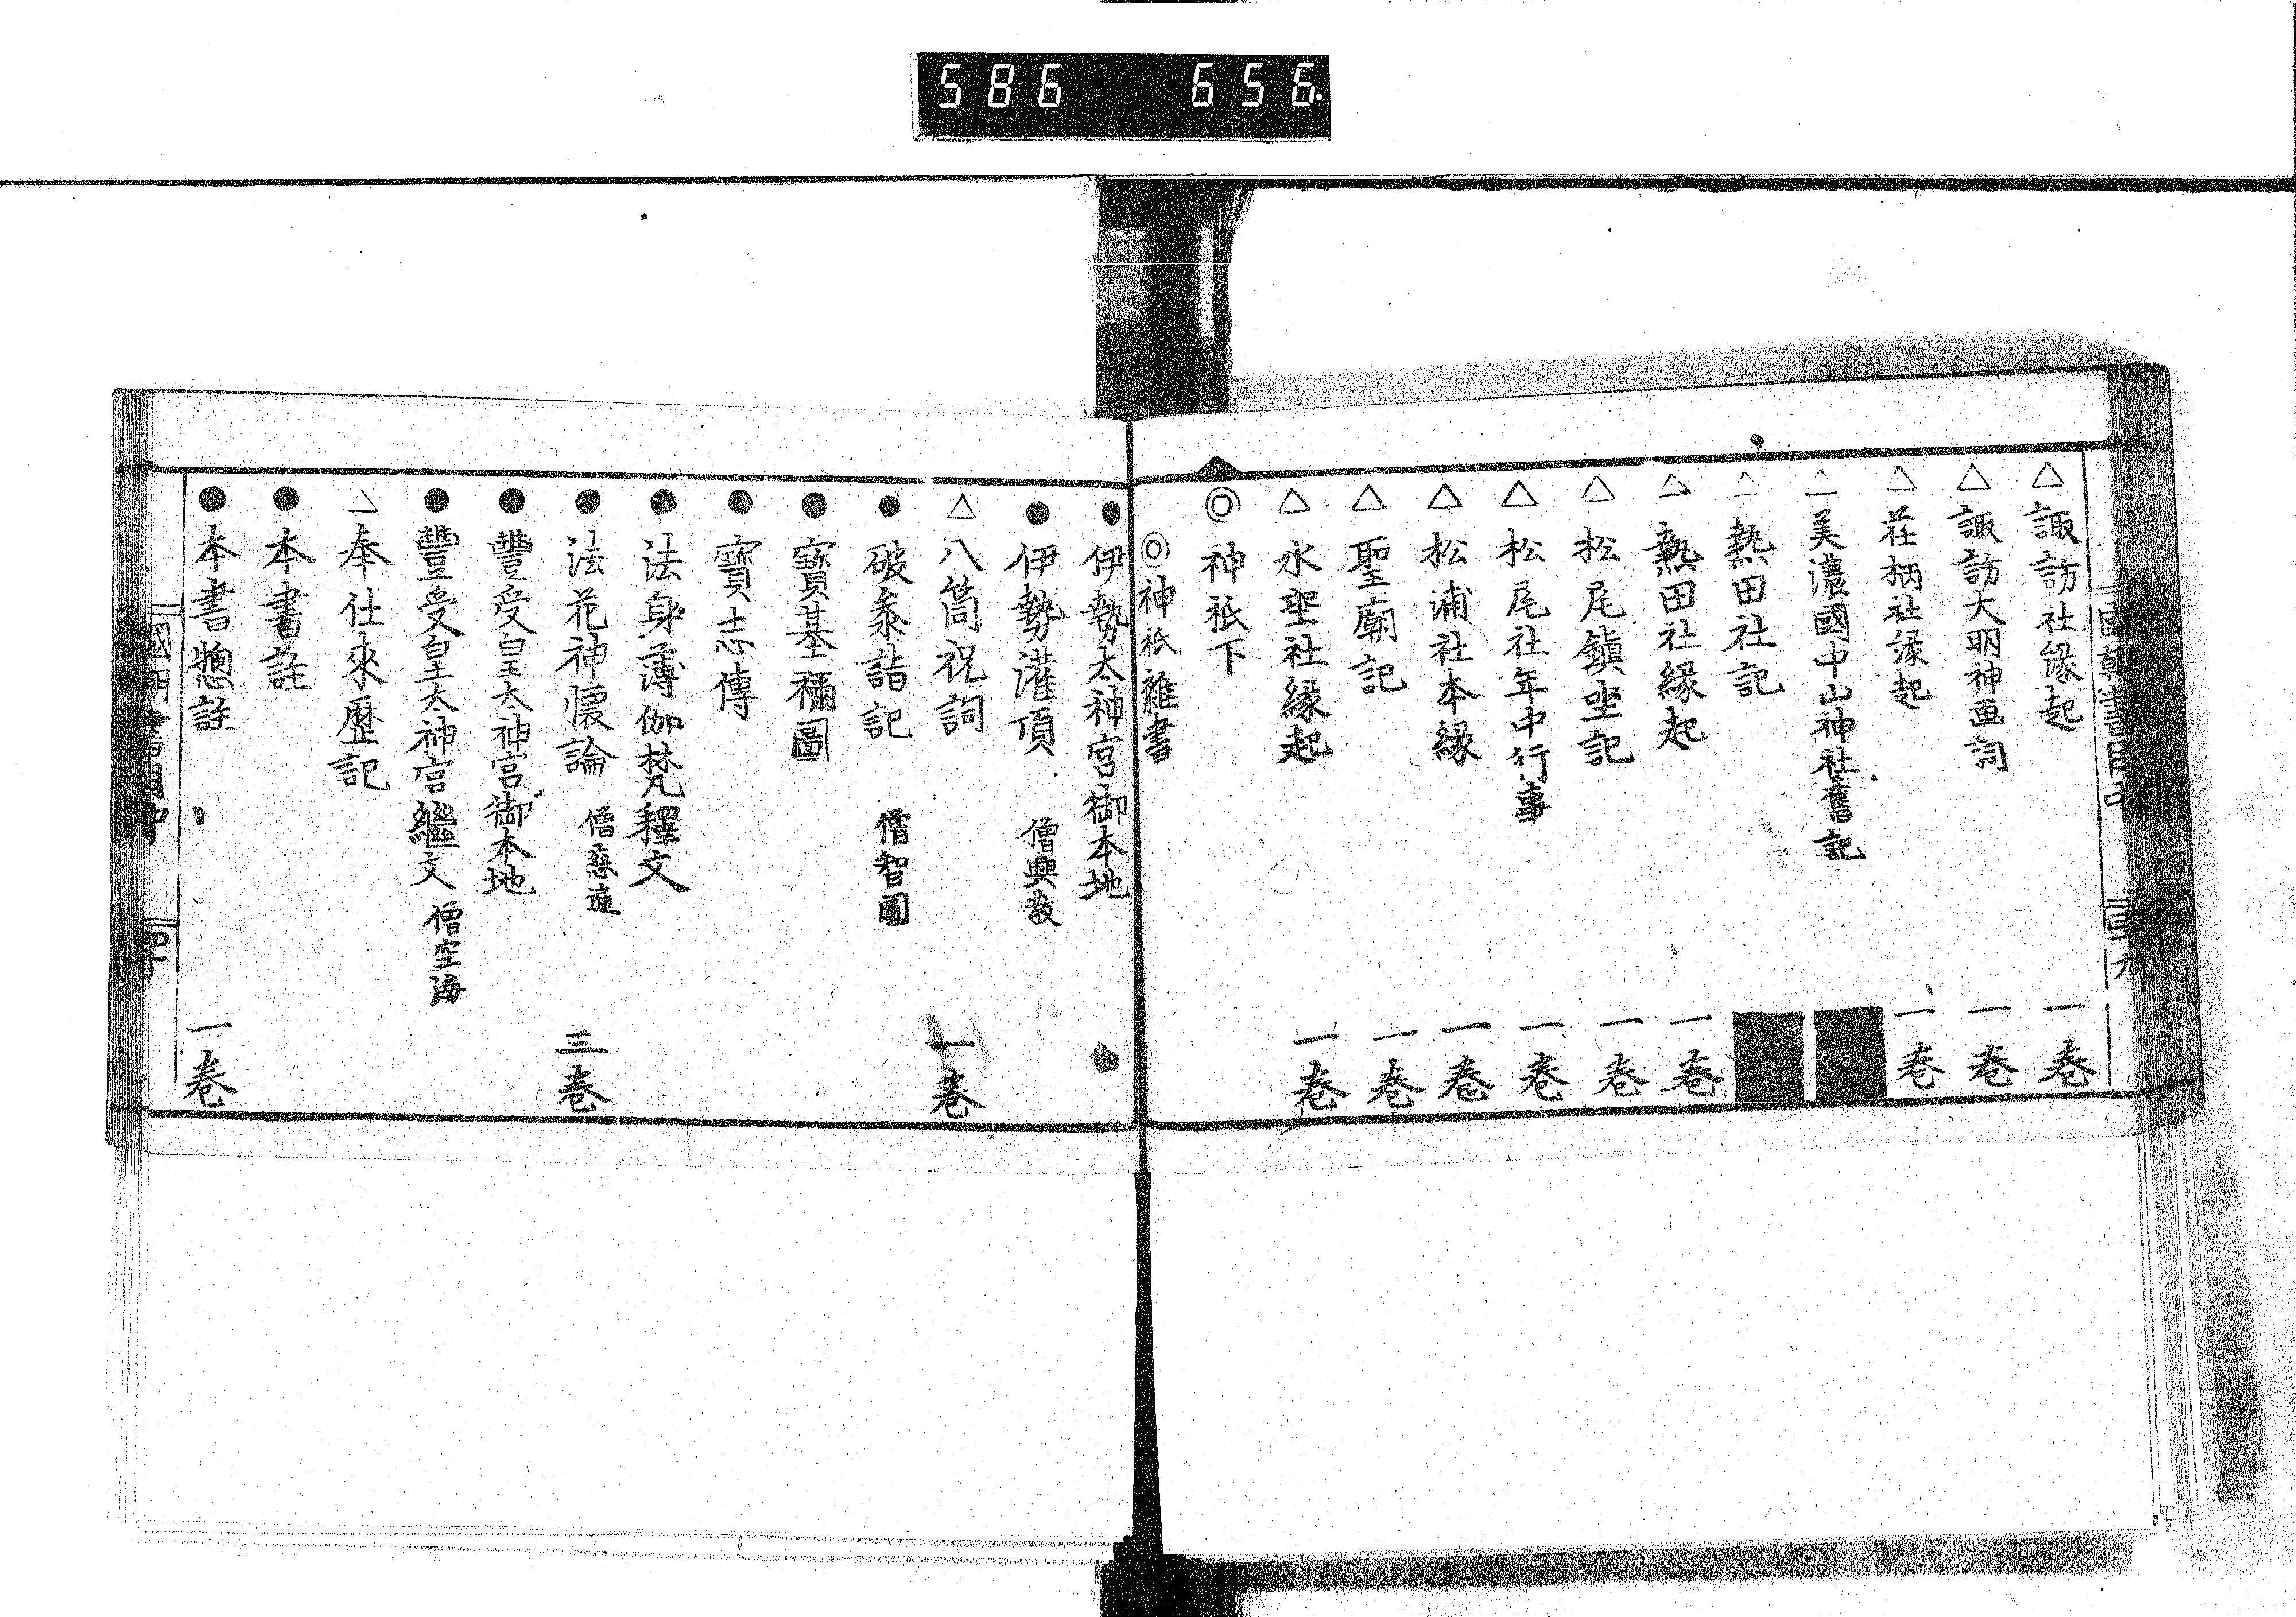 586 656.
國朝書目中
△諏訪社縁起 一巻
△諏訪大明神画詞 一巻
△荏柄社縁起 一巻
△美濃國中山神社舊記
△熱田社記
△熱田社縁起 一巻
△松尾鎮坐記 一巻
△松尾社年中行事 一巻
△松浦社本縁 一巻
△聖廟記 一巻
△水聖社縁起 一巻
◎神祇下
◎神祇雜書
●伊勢太神宮御本地
●伊勢灌頂 僧興教
△八箇祝詞 一巻
●破叅詰記 僧智圓
●寶基禰圖
●寶志傳
●法身薄伽梵釋文
●法花神懷論 僧慈遍 三巻
●豐受皇太神宮御本地
●豐受皇太神宮繼文 僧空海
△奉仕來歷記
●本書註
●本書惣註 一巻
國朝書目中
四十